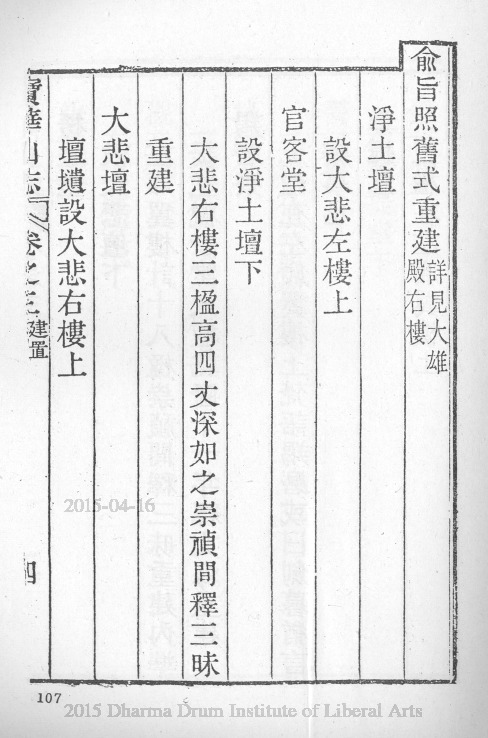 俞旨照舊式重建詳見大雄
殿右樓
淨土壇
設大悲左樓上
官客堂
設淨土壇下
大悲右樓三楹高四丈深如之崇禎間釋三昧
重建
大悲壇
壇墳設大悲右樓上
寶華山志
卷之三
建置
四
107
2015-04-16
2015 Dharma Drum Institute of Liberal Arts